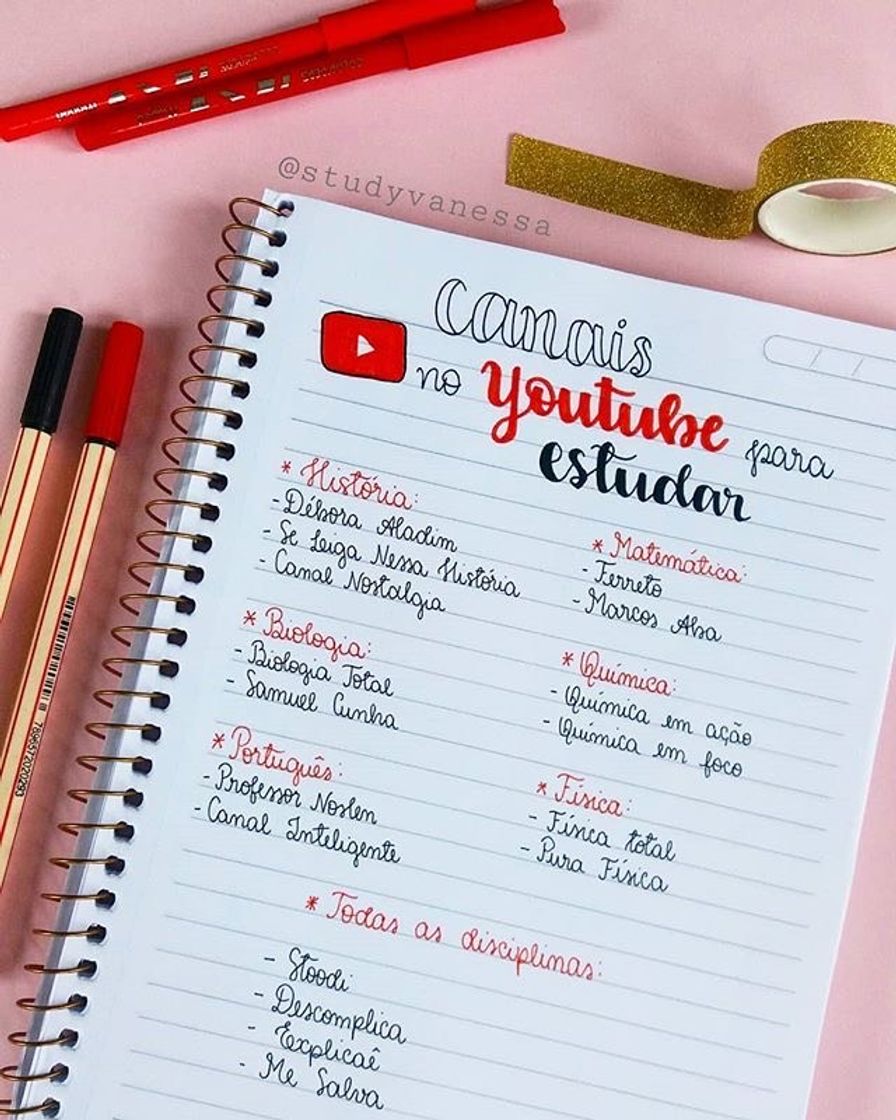 @studyvanessa
Canais
no Youtube para
estudar
* História:
- Débora Aladim
- Se Liga Nessa História
- Canal Nostalgia
* Biologia:
- Biologia Total
- Samuel Cunha
* Português:
- Professor Noslen
- Canal Inteligente
* Matemática:
- Ferreto
- Marcos Aba
* Química:
- Química em ação
- Química em foco
* Física:
- Física total
- Pura Física
* Todas as disciplinas:
- Stoodi
- Descomplica
- Explicaê
- Me Salva
7896572020293